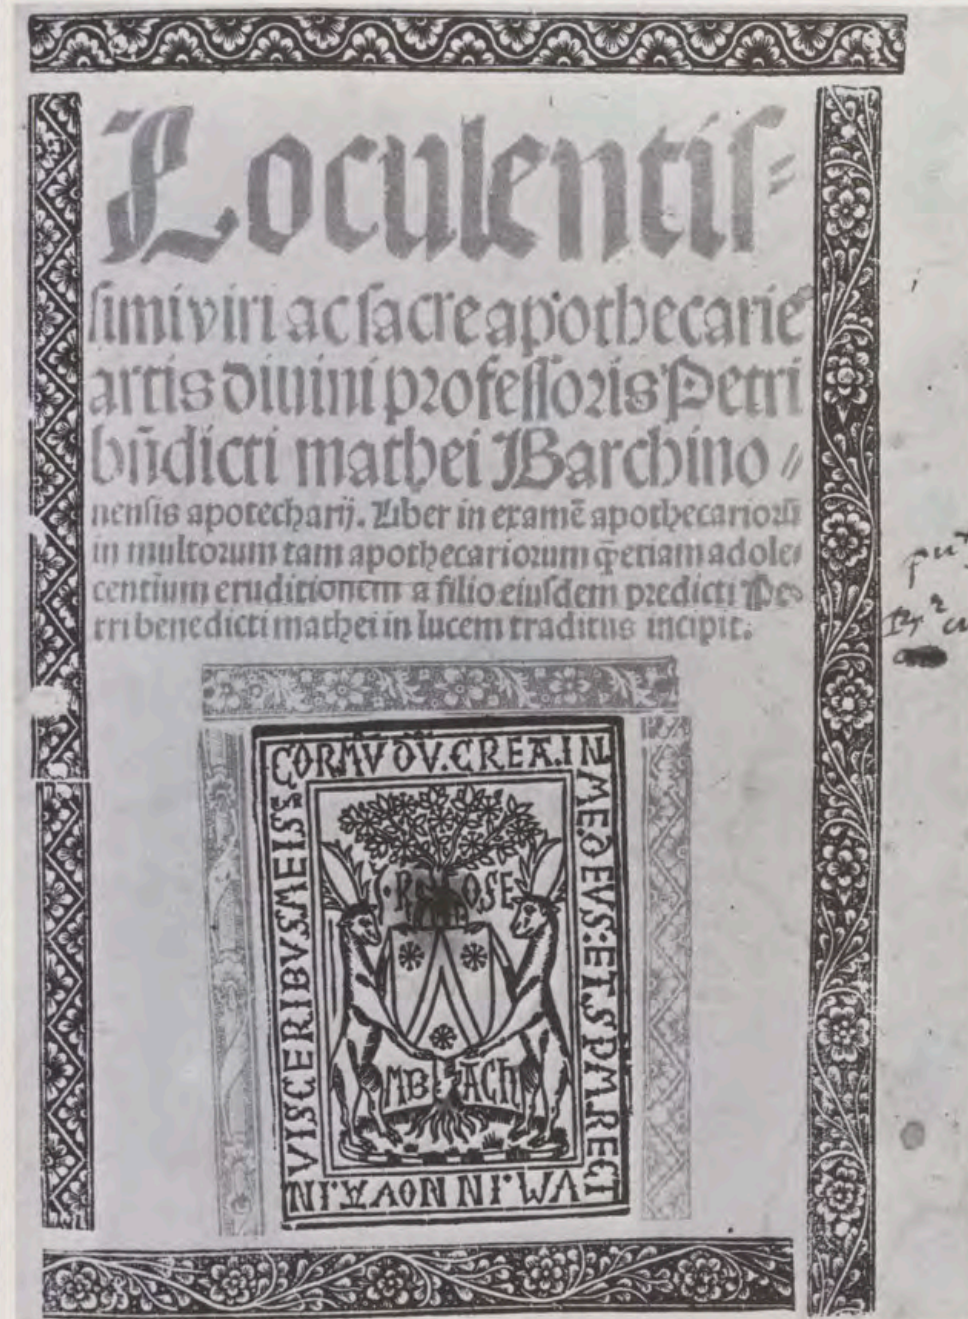 Loculentiſ⸗
ſimi viri ac ſacre apothecarie
artis diuini profeſſoris Petri
bn̄dicti mathei Barchino⸗
nenſis apotecharij. Liber in examē apothecarioꝝ
in multorum tam apothecariorum q̄ȝ etiam adole⸗
centium eruditionem a filio eiuſdem predicti Pe⸗
tri benedicti mathei in lucem traditus incipit.
COR MV̄DV̄. CREA. IN
ME. DEVS: ET. SPM. RECT
VM. IN NOVA. IN
VISCERIBVS MEIS
ROSE
MB ACH